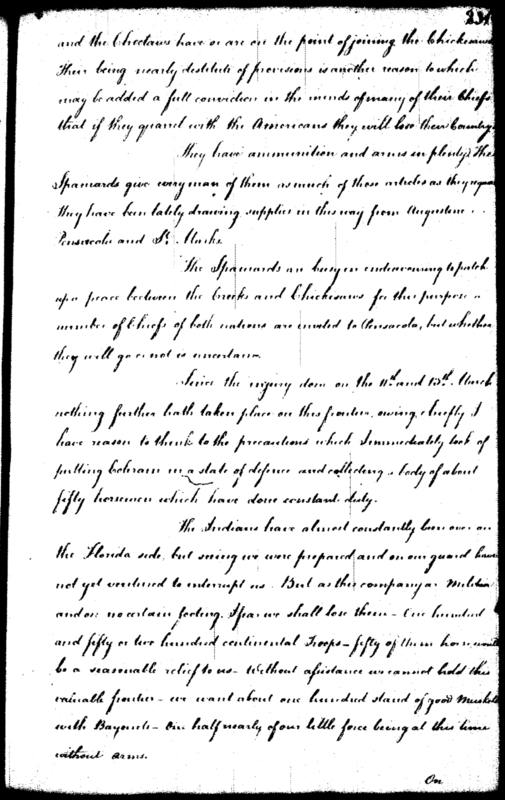 234
and the Choctaws have or are on the point of joining the Chickesaws
Their being nearly destitute of provisions is another reason to which
may be added a full conviction in the minds of many of their Chiefs
that if they quarrel with the Americans they will lose their Country.
They have ammunition and arms in plenty. The
Spaniards give every man of them as much of those articles as they require
They have been lately drawing supplies in this way from Augustine
Pensacola and St. Marks.
The Spaniards are busy in endeavouring to patch
up a peace between the Creeks and Chickesaws for this purpose a
number of Chiefs of both nations are invited to Pensacola, but whether
they will go or not is uncertain.
Since the injury done on the 11th. and 13th. March
nothing further hath taken place on this frontier, owing chiefly I
have reason to think to the precautions which I immediately took of
putting in a state of defence and collecting a body of about
fifty horsemen which have done constant duty.
The Indians have almost constantly been over on
the Florida side, but seeing we were prepared and on our guard have
not yet ventured to interrupt us. But as this company are Militia
and on no certain footing, I fear we shall lose them - One hundred
and fifty or two hundred continental Troops - fifty of them horse would
be a seasonable relief to us - Without assistance we cannot hold this
valuable frontier - we want about one hundred stand of good Muskets
with Bayonets - One half nearly of our little force being at this time
without arms.
On